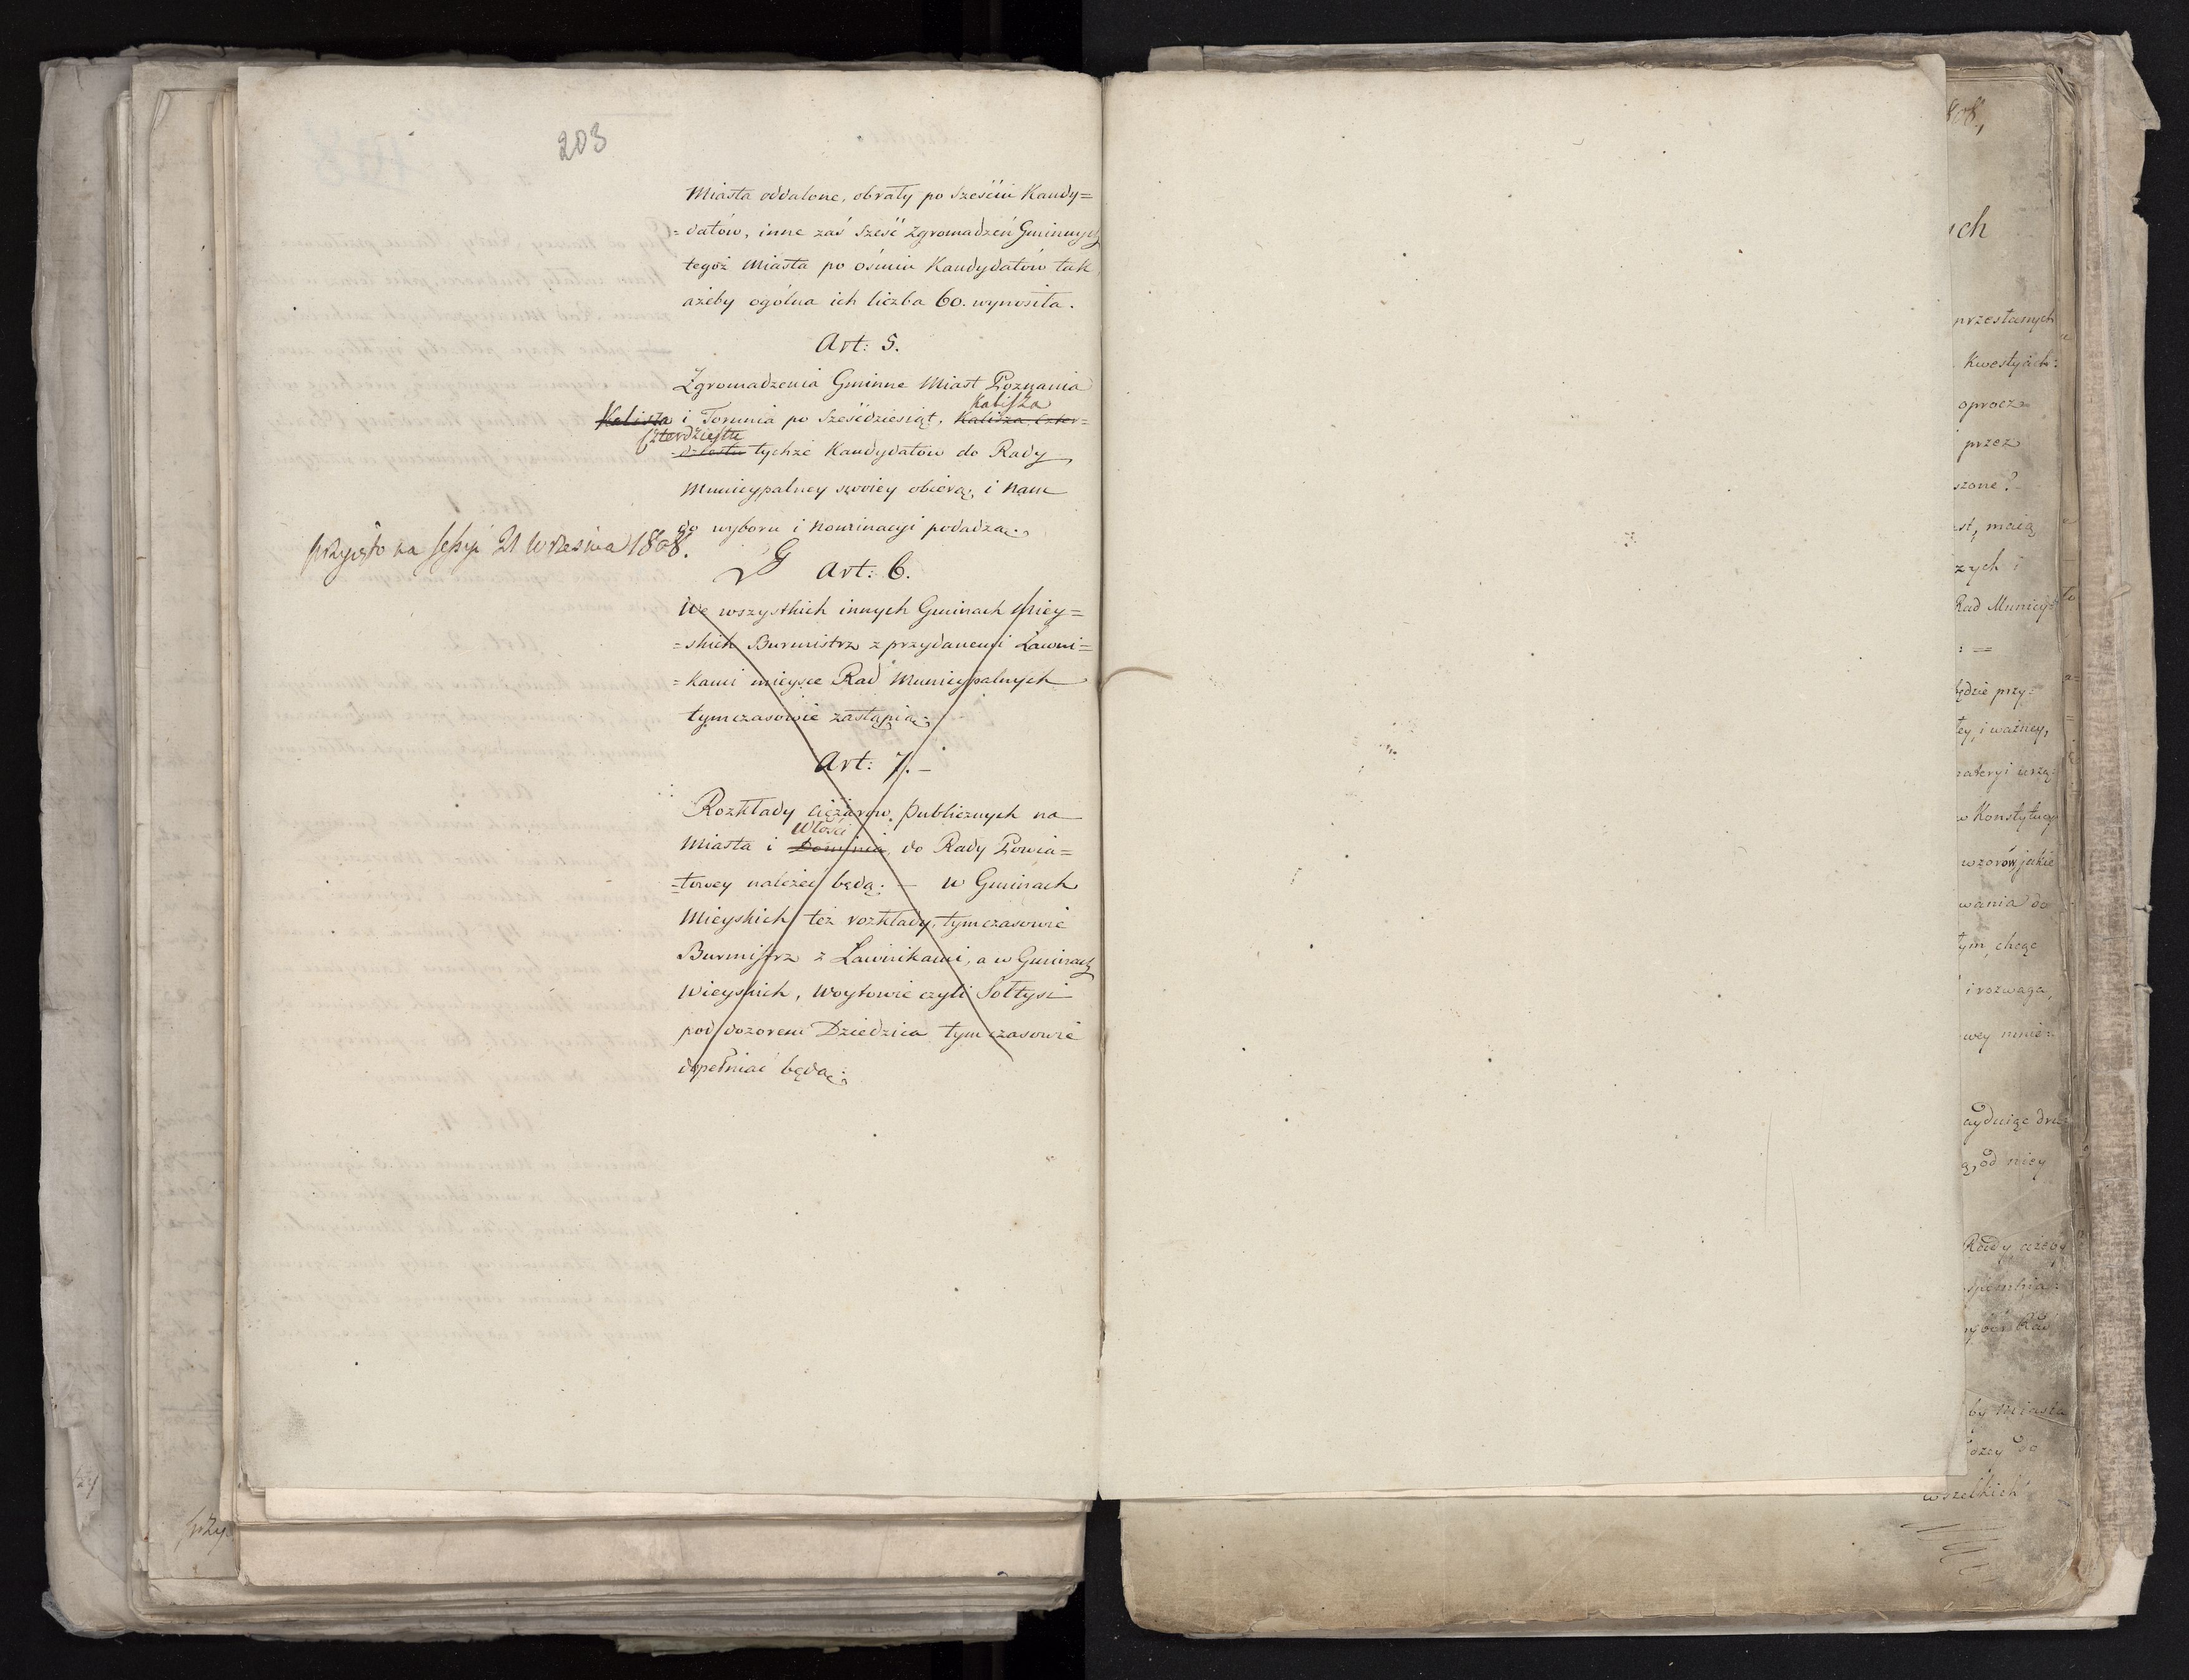 203
Miasta oddalone, obrały po sześciu Kandy=
=datów, inne zaś sześć Zgromadzeń Gminnych
tegoż Miasta po ośmiu Kandydatów tak
ażeby ogólna ich liczba 60. wynosiła.
Art: 5.
Zgromadzenia Gminne Miast Poznania
Kalisza
Kalisza i Torunia po sześćdziesiąt, Kalisza czter=
czterdziestu
=dziestu tychże Kandydatów do Rady
Municypalney swoiey obiorą, i Nam
do wyboru i Nominacyi podadzą.
przyięto na sessyi 21 Września 1808.
Art: 6.
We wszystkich innych Gminach Miey=
=skich Burmistrz z przydanemi Ławni=
=kami mieysce Rad Municypalnych
tymczasowie zastąpią.
Art: 7.
Rozkłady ciężarów publicznych na
Włości
Miasta i Dominia, do Rady Powia=
=towey należeć będą. — w Gminach
Mieyskich też rozkłady, tymczasowie
Burmistrz z Ławnikami, a w Gminach
Wieyskich, Woytowie czyli Sołtysi
pod dozorem Dziedzica tymczasowie
dopełniać będą.
przesłanych
Kwestyach
oprocz
przez
Rad Municy
ważney,
Konstytucy
wzorów jakie
wania do
chcąc
i rozwagą,
od niey
Rady
by Miasta
wszelkich